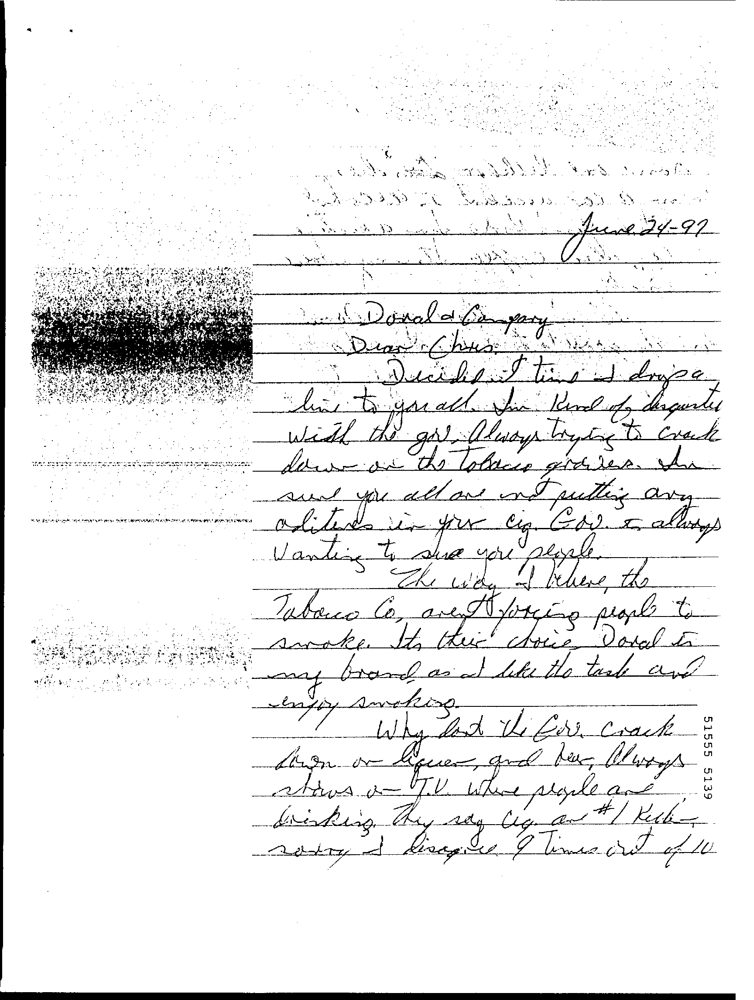 June 24-97
Doral & Company
Dear Chris,
Decided it time I drop a
line to you all. Im Kind of disgusted
with the gov. Always trying to crack
down on the Tobacco growers. Im
sure you all are not putting any
aditives in your cig. Gov. is always
Wanting to sue you people.
The way I believe, the
Tobacco Co, arent forcing people to
smoke. Its their choice. Doral is
my brand, as I like the taste and
enjoy smoking.
Why dont the Gov. crack
down on liquer, and beer, Always
shows on T.V. where people are
drinking. They say Cig. are #1 Killer
sorry I disagree 9 times out of 10
51555 5139